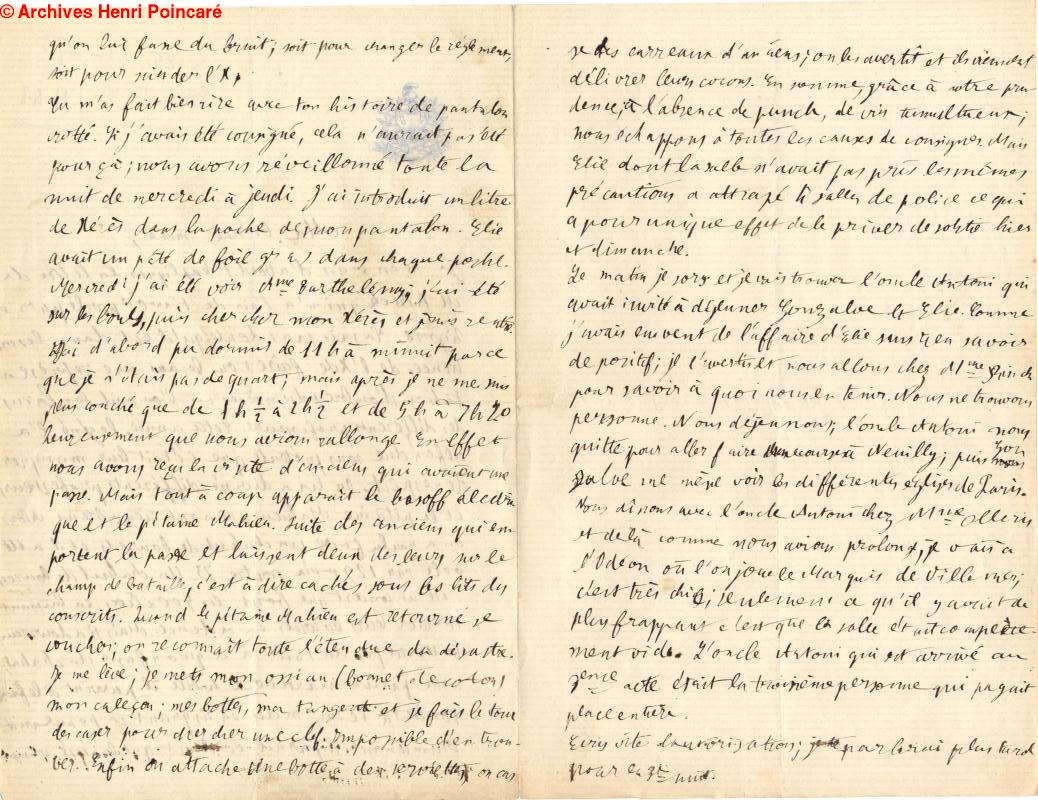 © Archives Henri Poincaré
qu'on lui fasse du bruit; soit pour changer le réglement,
soit pour scinder l'X,
Tu m'as fait bien rire avec ton histoire de pantalon
crotté. Si j'avais été consigné, cela n'aurait pas été
pour çà; nous avons réveillonné toute la
nuit de mercredi à jeudi. J'ai introduit un litre
de Xérès dans la poche de mon pantalon. Elie
avait un pâté de foie gras dans chaque poche.
Mercredi j'ai été voir Mme Barthelemy, j'ai été
sur les boul, puis chercher mon Xérès et je suis rentré.
J'ai d'abord pu dormir de 11h à minuit parce
que je n'étais pas de quart; mais après je ne me suis
plus couché que de 1h ½ à 2h ½ et de 5h à 7h 20
heureusement que nous avions rallonge. En effet
nous avons reçu la visite d'anciens qui avaient une
passe. Mais tout à coup apparait le basoff
que et le pitaine Mahieu. Fuite des anciens qui em
portent la passe et laissent deux des leurs sur le
champ de bataille, c'est à dire cachés sous les lits des
conscrits. Quand le pitaine Mahieu est retourné se
coucher; on reconnait toute l'étendue du désastre.
Je me lève; je mets mon ossian (bonnet de coton)
mon caleçon; mes bottes, ma tangente et je fais le tour
des casers pour chercher une clef. Impossible d'en trou-
ver. Enfin on attache une botte à des serviettes, on cas
se des carreaux d'anciens; on les avertit et ils viennent
délivrer leurs cocons. En somme, grâce à notre pru
dence, à l'absence de punch, de vin tumultueux;
nous échappons à toutes les causes de consignes. Mais
Elie dont la salle n'avait pas pris les mêmes
précautions a attrapé salles de police ce qui
a pour unique effet de le priver de sortie hier
et dimanche.
Le matin je sors et je vais trouver l'oncle Antoni qui
avait invité à déjeuner Gonzalve et Elie. Comme
j'avais eu vent de l'affaire d'Elie sans en savoir
de positif; je l'avertis et nous allons chez Mme
pour savoir à quoi nous en tenir. Nous ne trouvons
personne. Nous déjeunons; l'oncle Antoni nous
quitte pour aller faire une course à Neuilly; puis Gon
zalve me mène voir les différentes églises de Paris.
Nous dînons avec l'oncle Antoni chez Mme Olleris
et de là comme nous avions prolonx, je vais à
l'Odéon où l'on joue le Marquis de Villemer;
c'est très chic; seulement ce qu'il y avait de
plus frappant c'est que la salle était complète-
ment vide. L'oncle Antoni qui est arrivé au
acte était la troisième personne qui payait
place entière.
Ecris vite l'autorisation; je parlerai plus tard
pour la